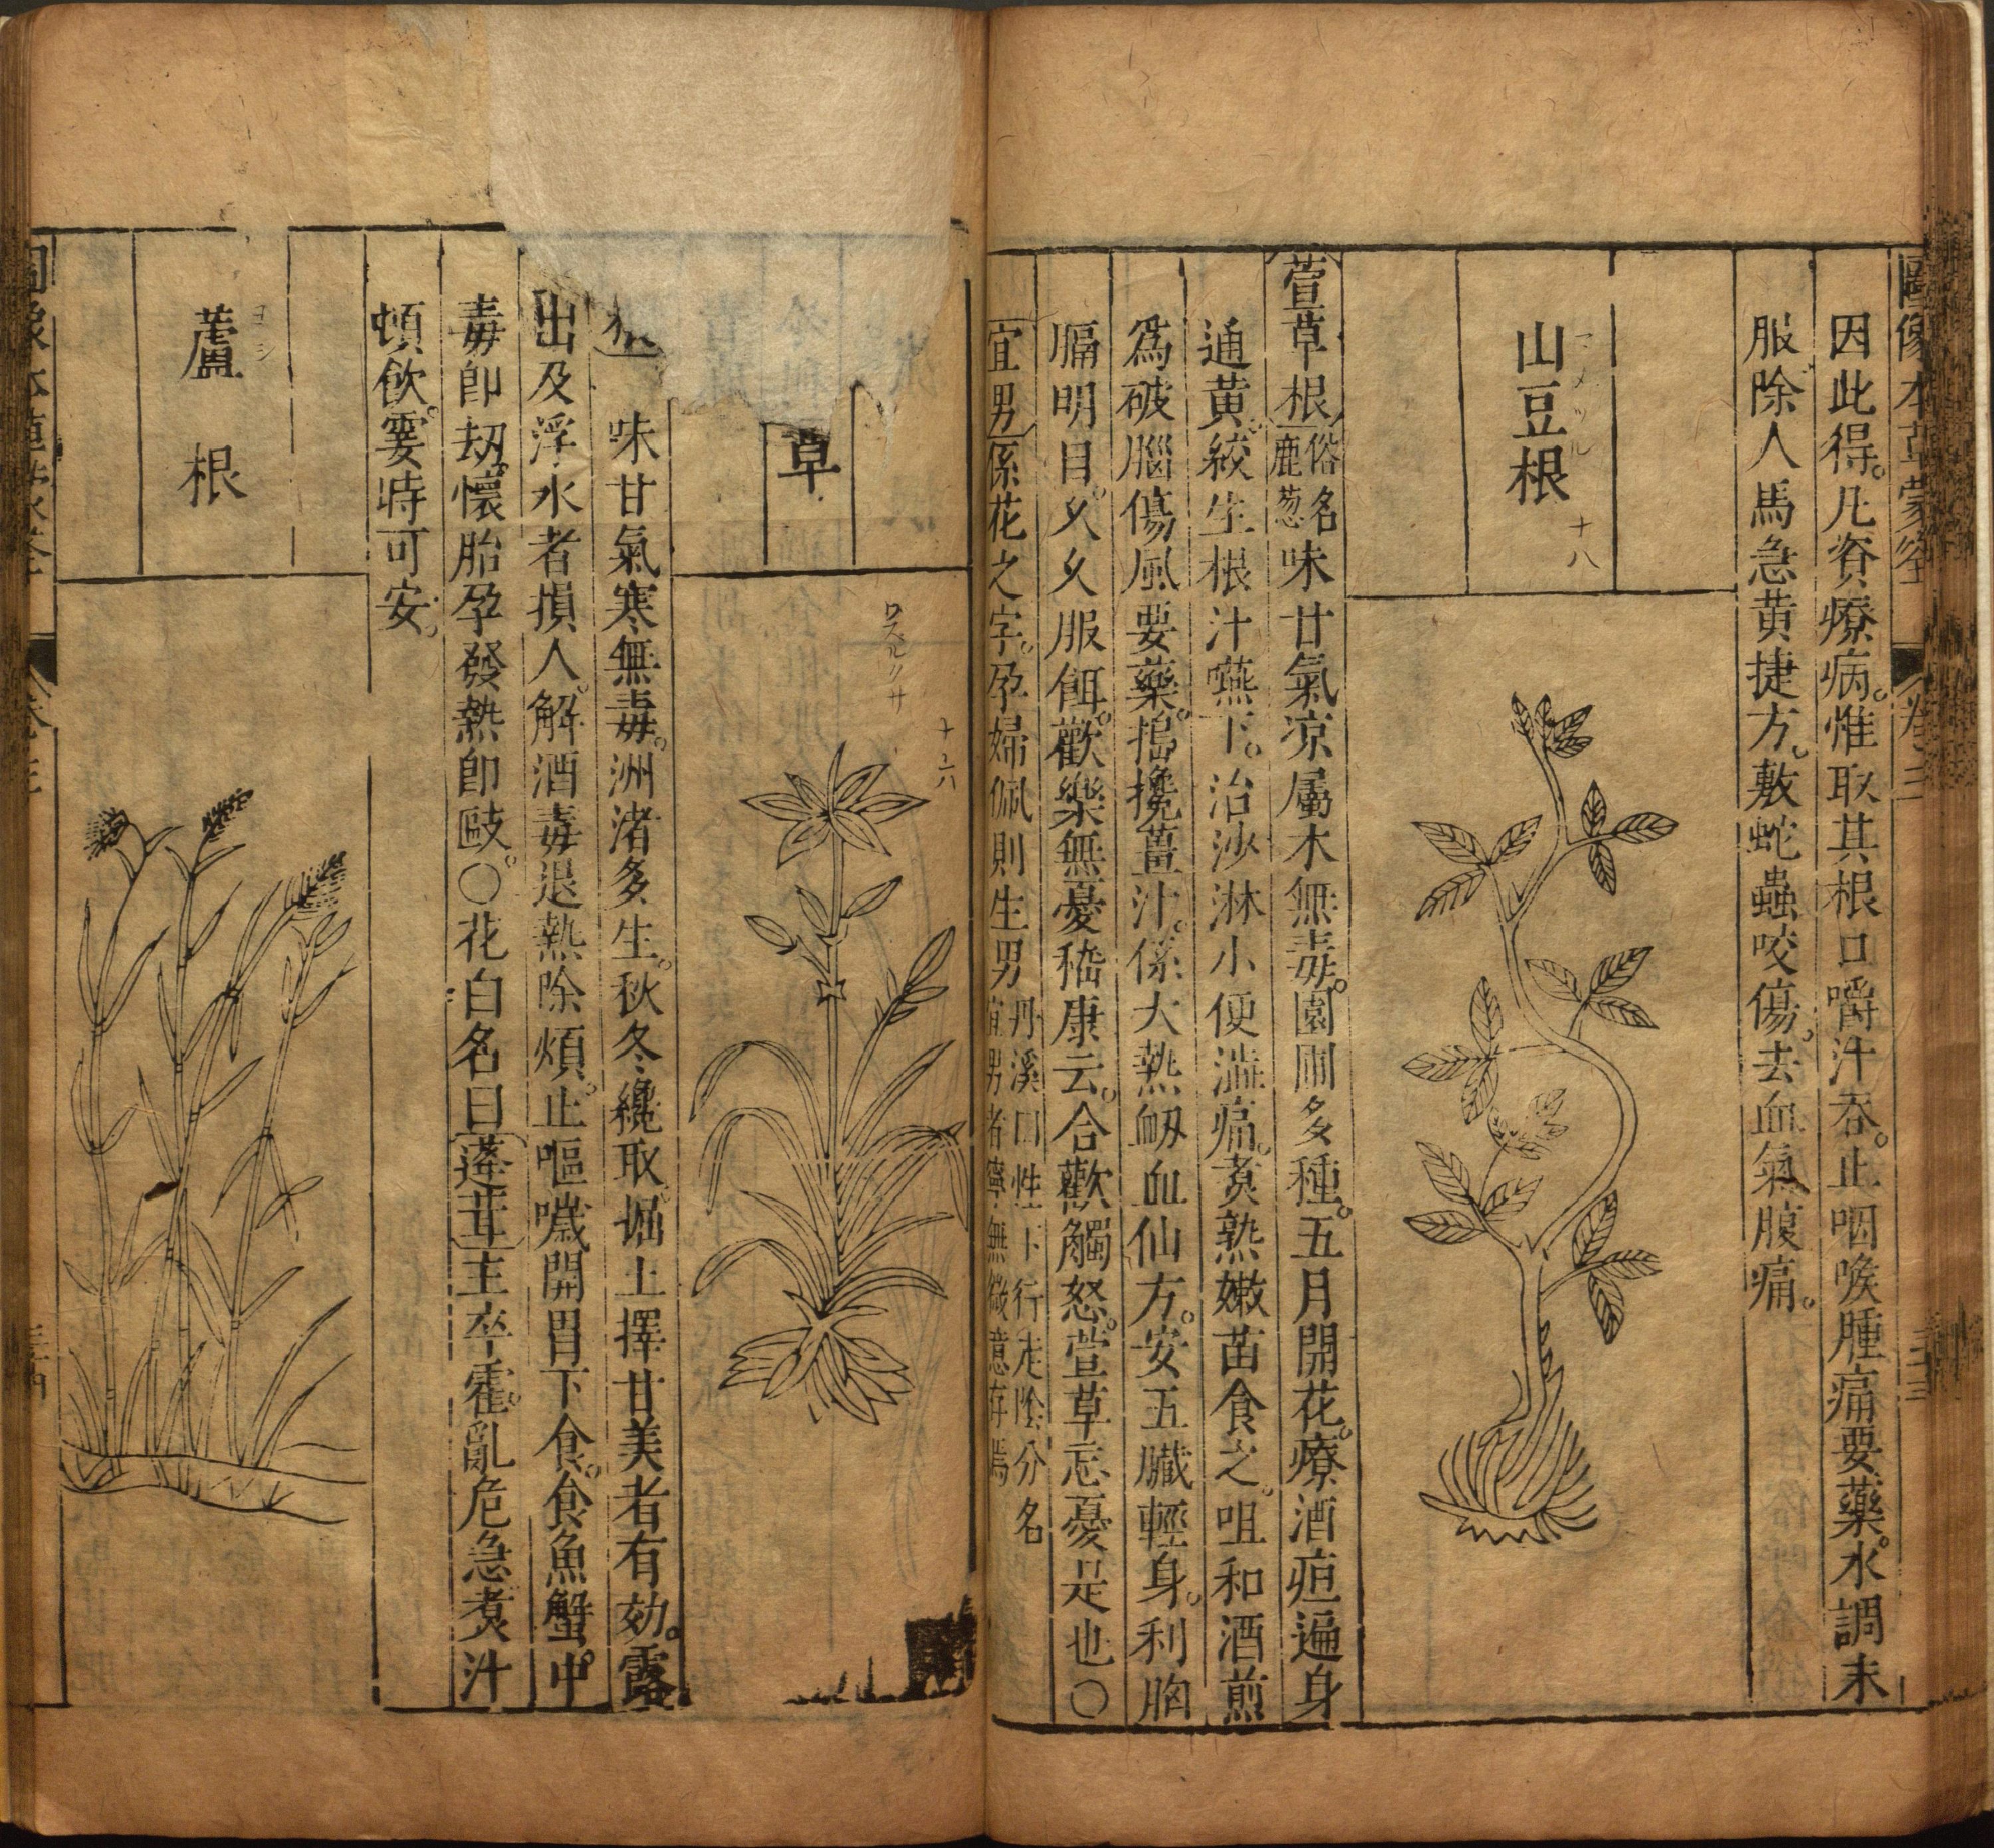 圖像本草蒙筌 卷三 三三
因此得。凡資療病。惟取其根口嚼汁吞。止咽喉腫痛要藥。水調末
服。除人馬急黃捷方。敷蛇蟲咬傷。去血氣腹痛。
山豆根
十八
萱草根 俗名鹿葱 味甘氣凉屬木無毒。園圃多種。五月開花。療酒疸遍身
通黃。絞生根汁嚥下。治沙淋小便澁痛。煑熟嫩苗食之。咀和酒煎
為破腦傷風要藥。搗攙薑汁。係大熱衂血仙方。安五臟輕身。利胸
膈明目。乆乆服餌。歡樂無憂嵇康云。合歡蠲怒。萱草忘憂是也〇
宜男係花之字。孕婦佩則生男 丹溪曰性下行走陰分名宜男者寧無微意存焉
草
ワスルクサ
十六
味甘氣寒無毒。洲渚多生。秋冬纔取。掘土擇甘美者有効。露
出及浮水者損人。解酒毒退熱除煩。止嘔噦開胃下食。食魚蟹中
毒即刼。懷胎孕發熱即敺。〇花白名曰蓬茸主卒霍。亂危急煑汁
頓飲。霎時可安。
蘆根
ヨシ